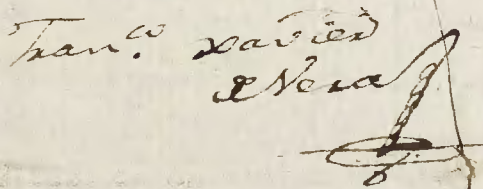 Fran.co xavier
de Vera